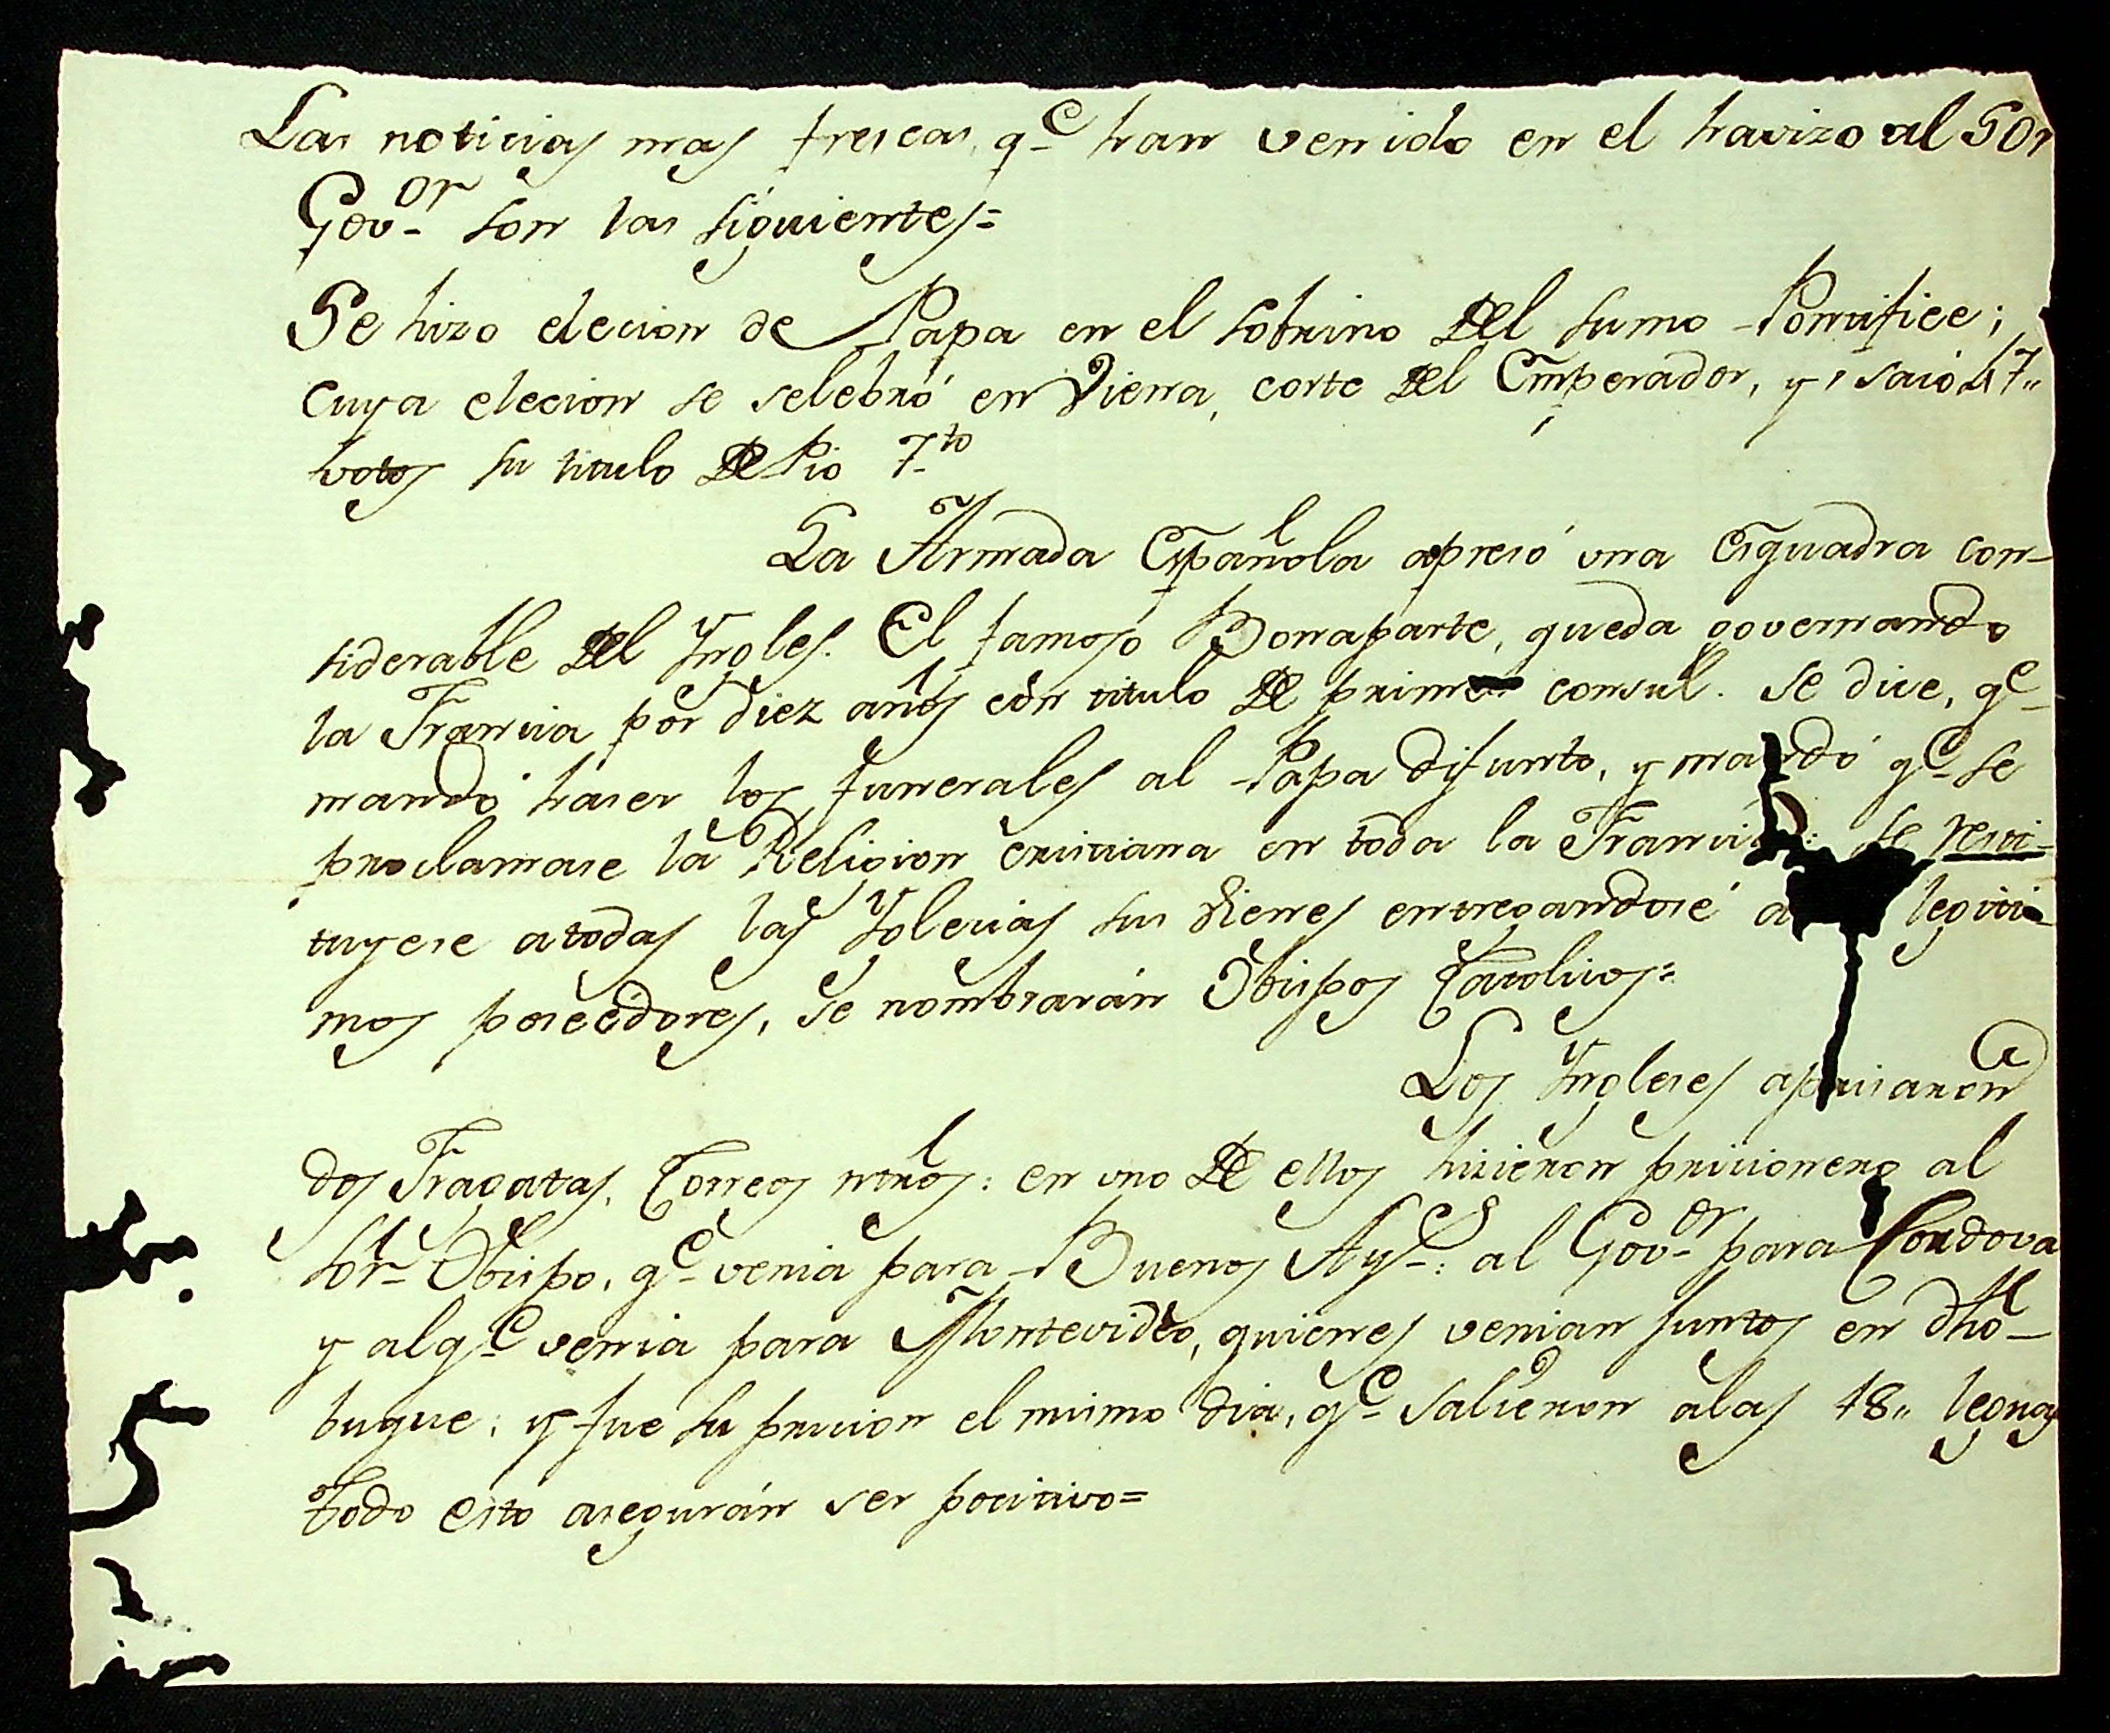 Las noticias mas frescas, qe han venido en el havizo al Sor
Govor son las siguientes=
Se hizo elecion de Papa en el sobrino del sumo Pontifice;
cuya elecion se selebró en Viena, corte del Emperador, y saco 47"
votos su titulo de Pio 7to
La Armada Española apresó una esquadra con-
siderable del Yngles. El famoso Bonaparte, queda governando
la Francia por diez años con titulo de primer consul. se dice, qe
mandó haser los funerales al Papa difunto, y mandó qe se
proclamase la Religion cristiana en toda la Francia: se resti-
tuyese a todas las Yglecias sus vienes entregandose a legiti-
mos poseedores, se nombrarán Obispos Catolicos=
Los Yngleses aprisaron
dos Fragatas, Correos ntros: en uno de ellos hisieron pricionero al
Sor Obispo, qe venia para Buenos Ays: al Govor para Cordova
y al qe venia para Montevideo, quienes venian juntos en dho
buque; y fue su pricion el mismo dia, qe salieron a las 18" leguas
Todo esto asegurán ser pocitivo=